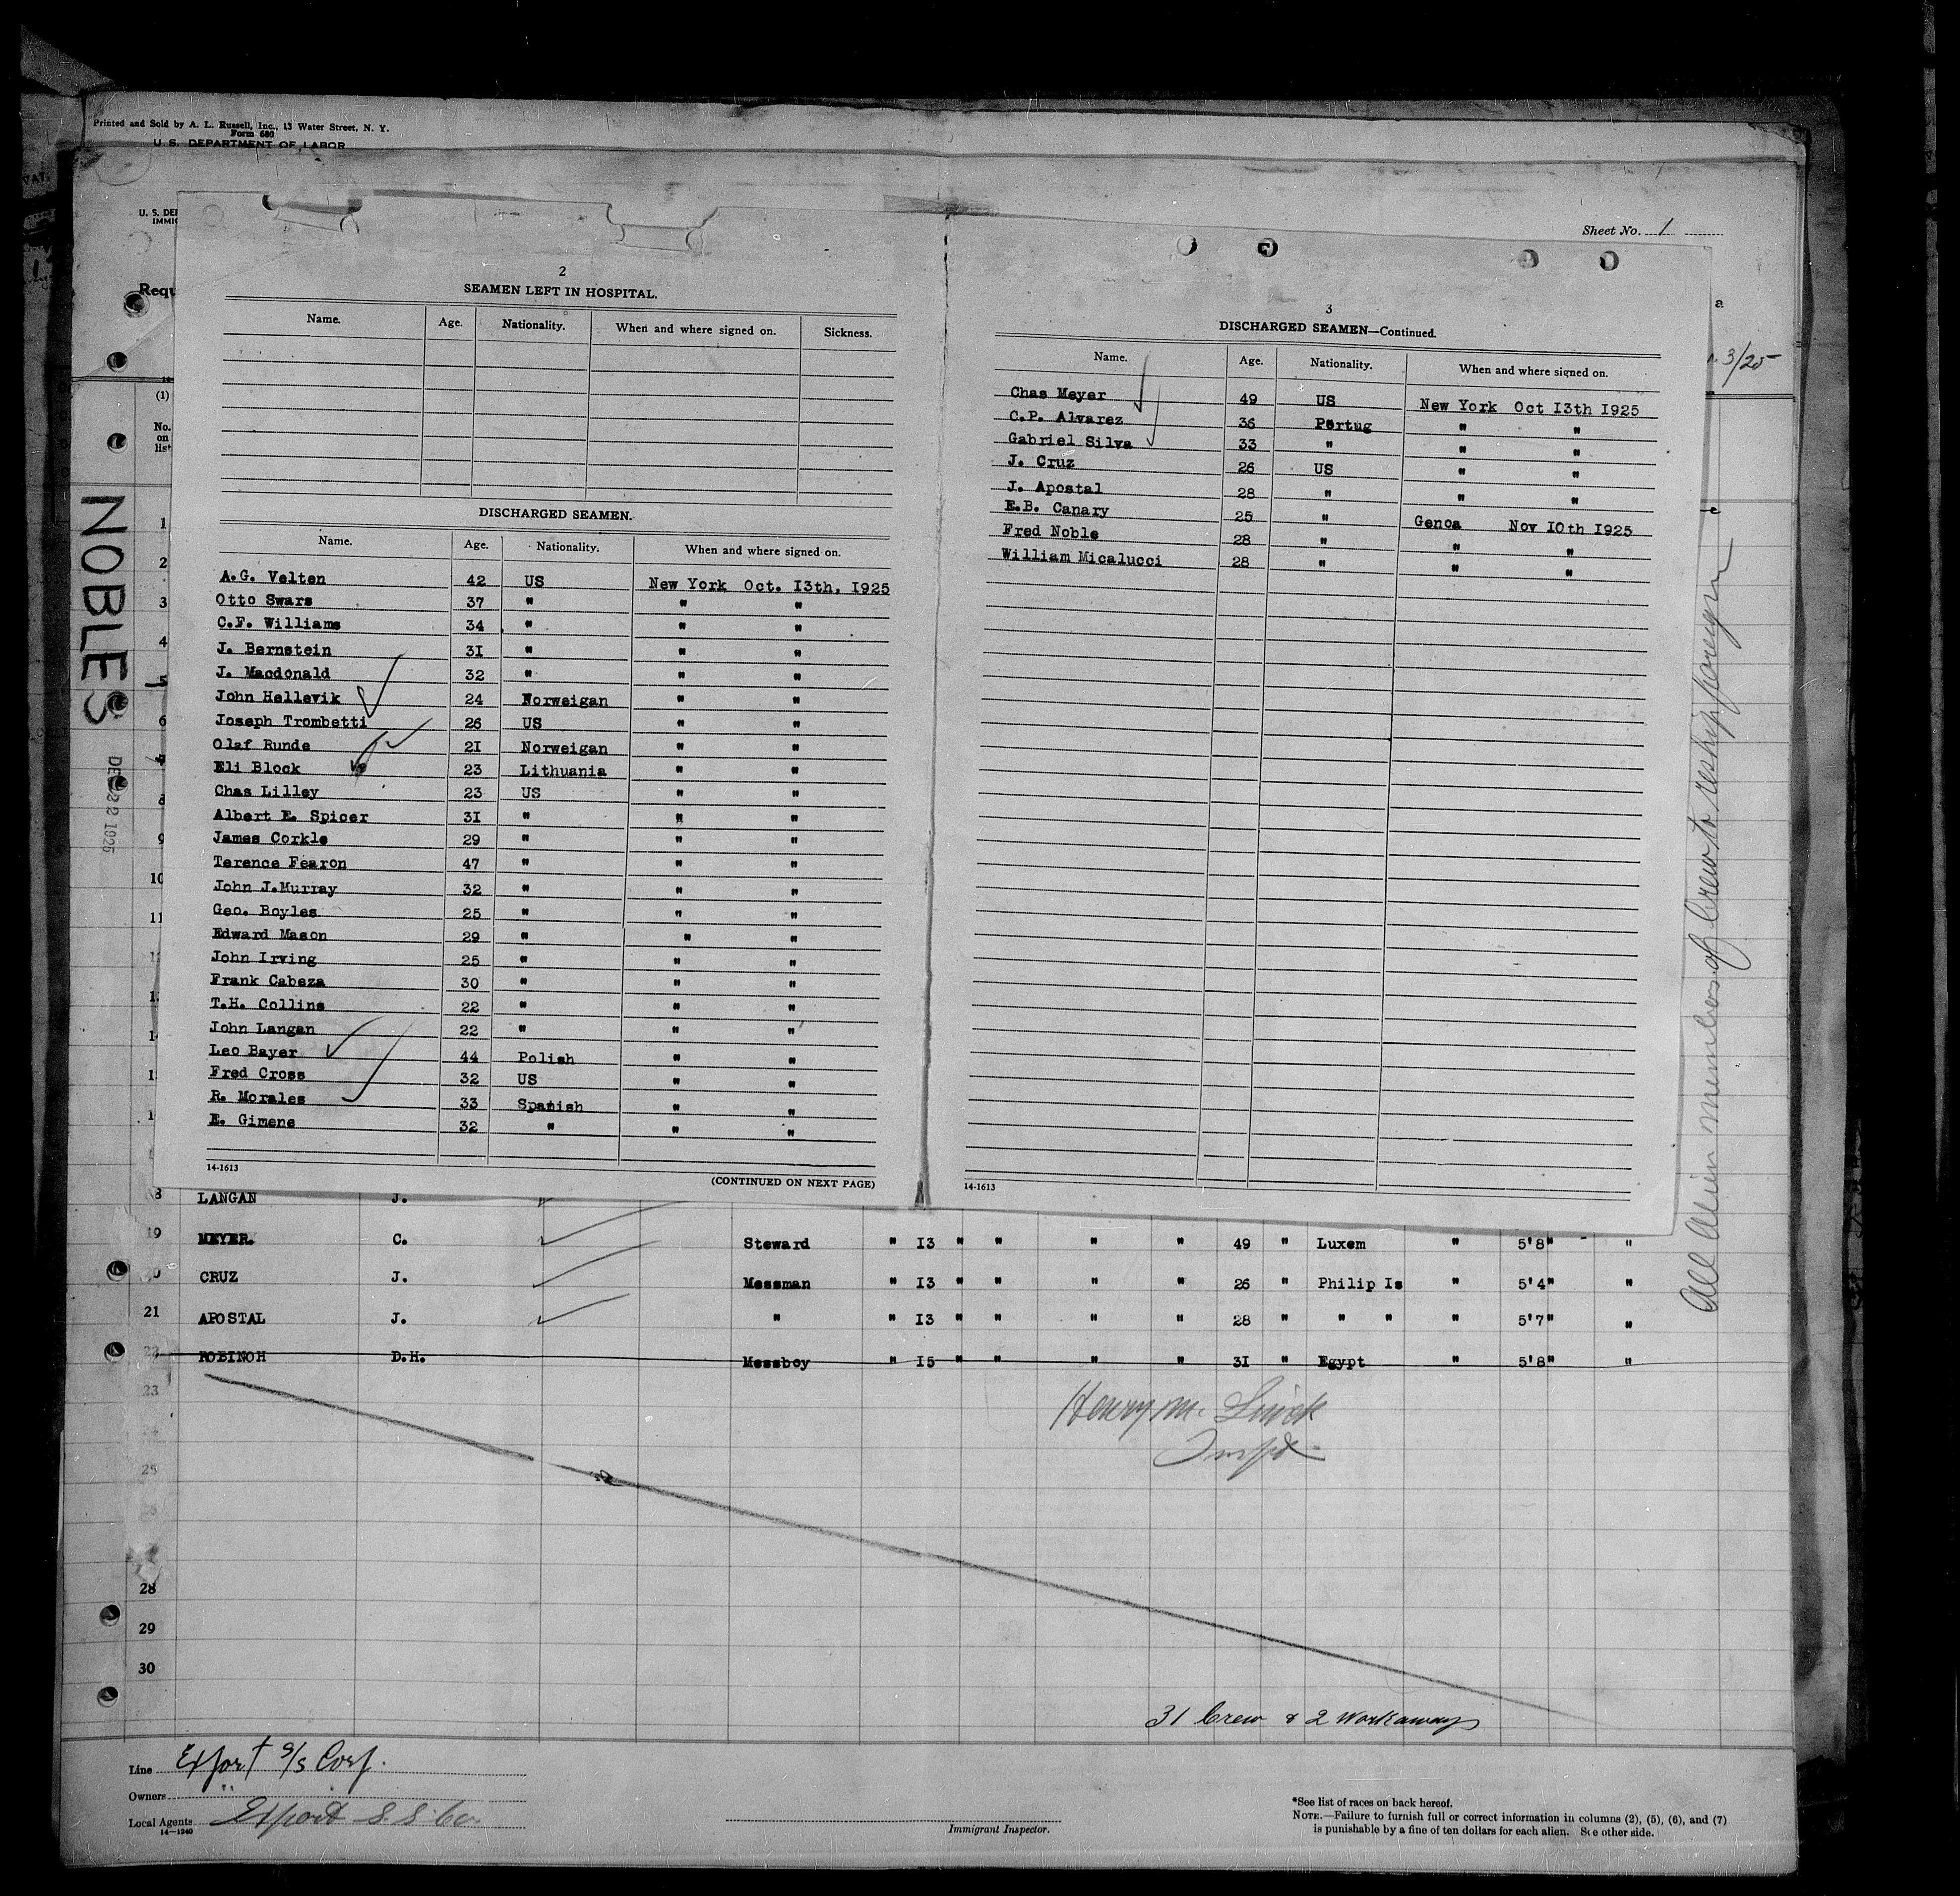 Printed and Sold by A. L. Russell, Inc., 13 Water Street, N. Y.
Form 680
U. S. DEPARTMENT OF LABOR
U. S. DE
IMMI
Requ
Sheet No. 1
3/25
(1)
No. on list
NOBLES
DEC 22 1925
2
SEAMEN LEFT IN HOSPITAL.
Name. Age. Nationality. When and where signed on. Sickness.
DISCHARGED SEAMEN.
Name. Age. Nationality. When and where signed on.
A.G. Velten 42 US New York Oct. I3th, I925
Otto Swars 37 " " "
C.F. Williams 34 " " "
J. Bernstein 3I " " "
J. Macdonald 32 " " "
John Hellevik 24 Norweigan " "
Joseph Trombetti 26 US " "
Olaf Runde 2I Norweigan " "
Eli Block 23 Lithuania " "
Chas Lilley 23 US " "
Albert E. Spicer 3I " " "
James Corkle 29 " " "
Terence Fearon 47 " " "
John J.Murray 32 " " "
Geo. Boyles 25 " " "
Edward Mason 29 " " "
John Irving 25 " " "
Frank Cabeza 30 " " "
T.H. Collins 22 " " "
John Langan 22 " " "
Leo Bayer 44 Polish " "
Fred Cross 32 US " "
R. Morales 33 Spanish " "
E. Gimene 32 " " "
14-1613
(CONTINUED ON NEXT PAGE)
3
DISCHARGED SEAMEN—Continued.
Name. Age. Nationality. When and where signed on.
Chas Meyer 49 US New York Oct I3th I925
C.P. Alvarez 36 Portug " "
Gabriel Silva 33 " " "
J. Cruz 26 US " "
J. Apostal 28 " " "
E.B. Canary 25 " Genoa Nov I0th I925
Fred Noble 28 " " "
William Micalucci 28 " " "
14-1613
All Alien members of Crew to reship foreign
1
2
3
4
5
6
8
9
10
11
8 LANGAN J.
19 MEYER. C. Steward " I3 " " " " 49 " Luxem " 5'8" "
CRUZ J. Messman " I3 " " " " 26 " Philip Is " 5'4" "
21 APOSTAL J. " " I3 " " " " 28 " " " " 5'7" "
22 ROBINOH D.H. Messboy " I5 " " " " 3I " Egypt " 5'8" "
23
24
25
26
28
29
30
Henry M.
31 Crew & 2 Workaways
Line Export S/S Corp.
Owners "
Local Agents Export S.S. Co.
14—1240
Immigrant Inspector.
*See list of races on back hereof.
NOTE.—Failure to furnish full or correct information in columns (2), (5), (6), and (7)
is punishable by a fine of ten dollars for each alien. See other side.